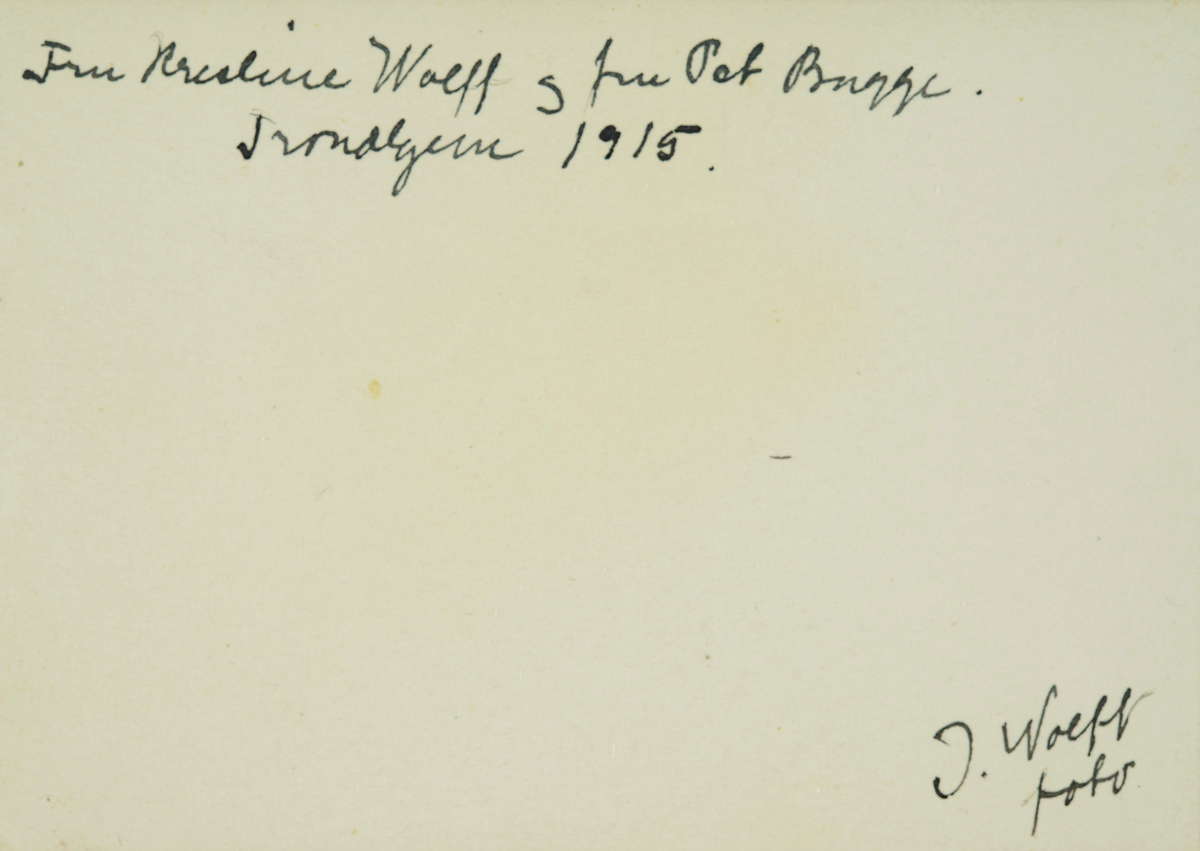 Fru Kristine Wolff og fru Pet Bugge.
Trondhjem 1915.
J. Wolff
foto